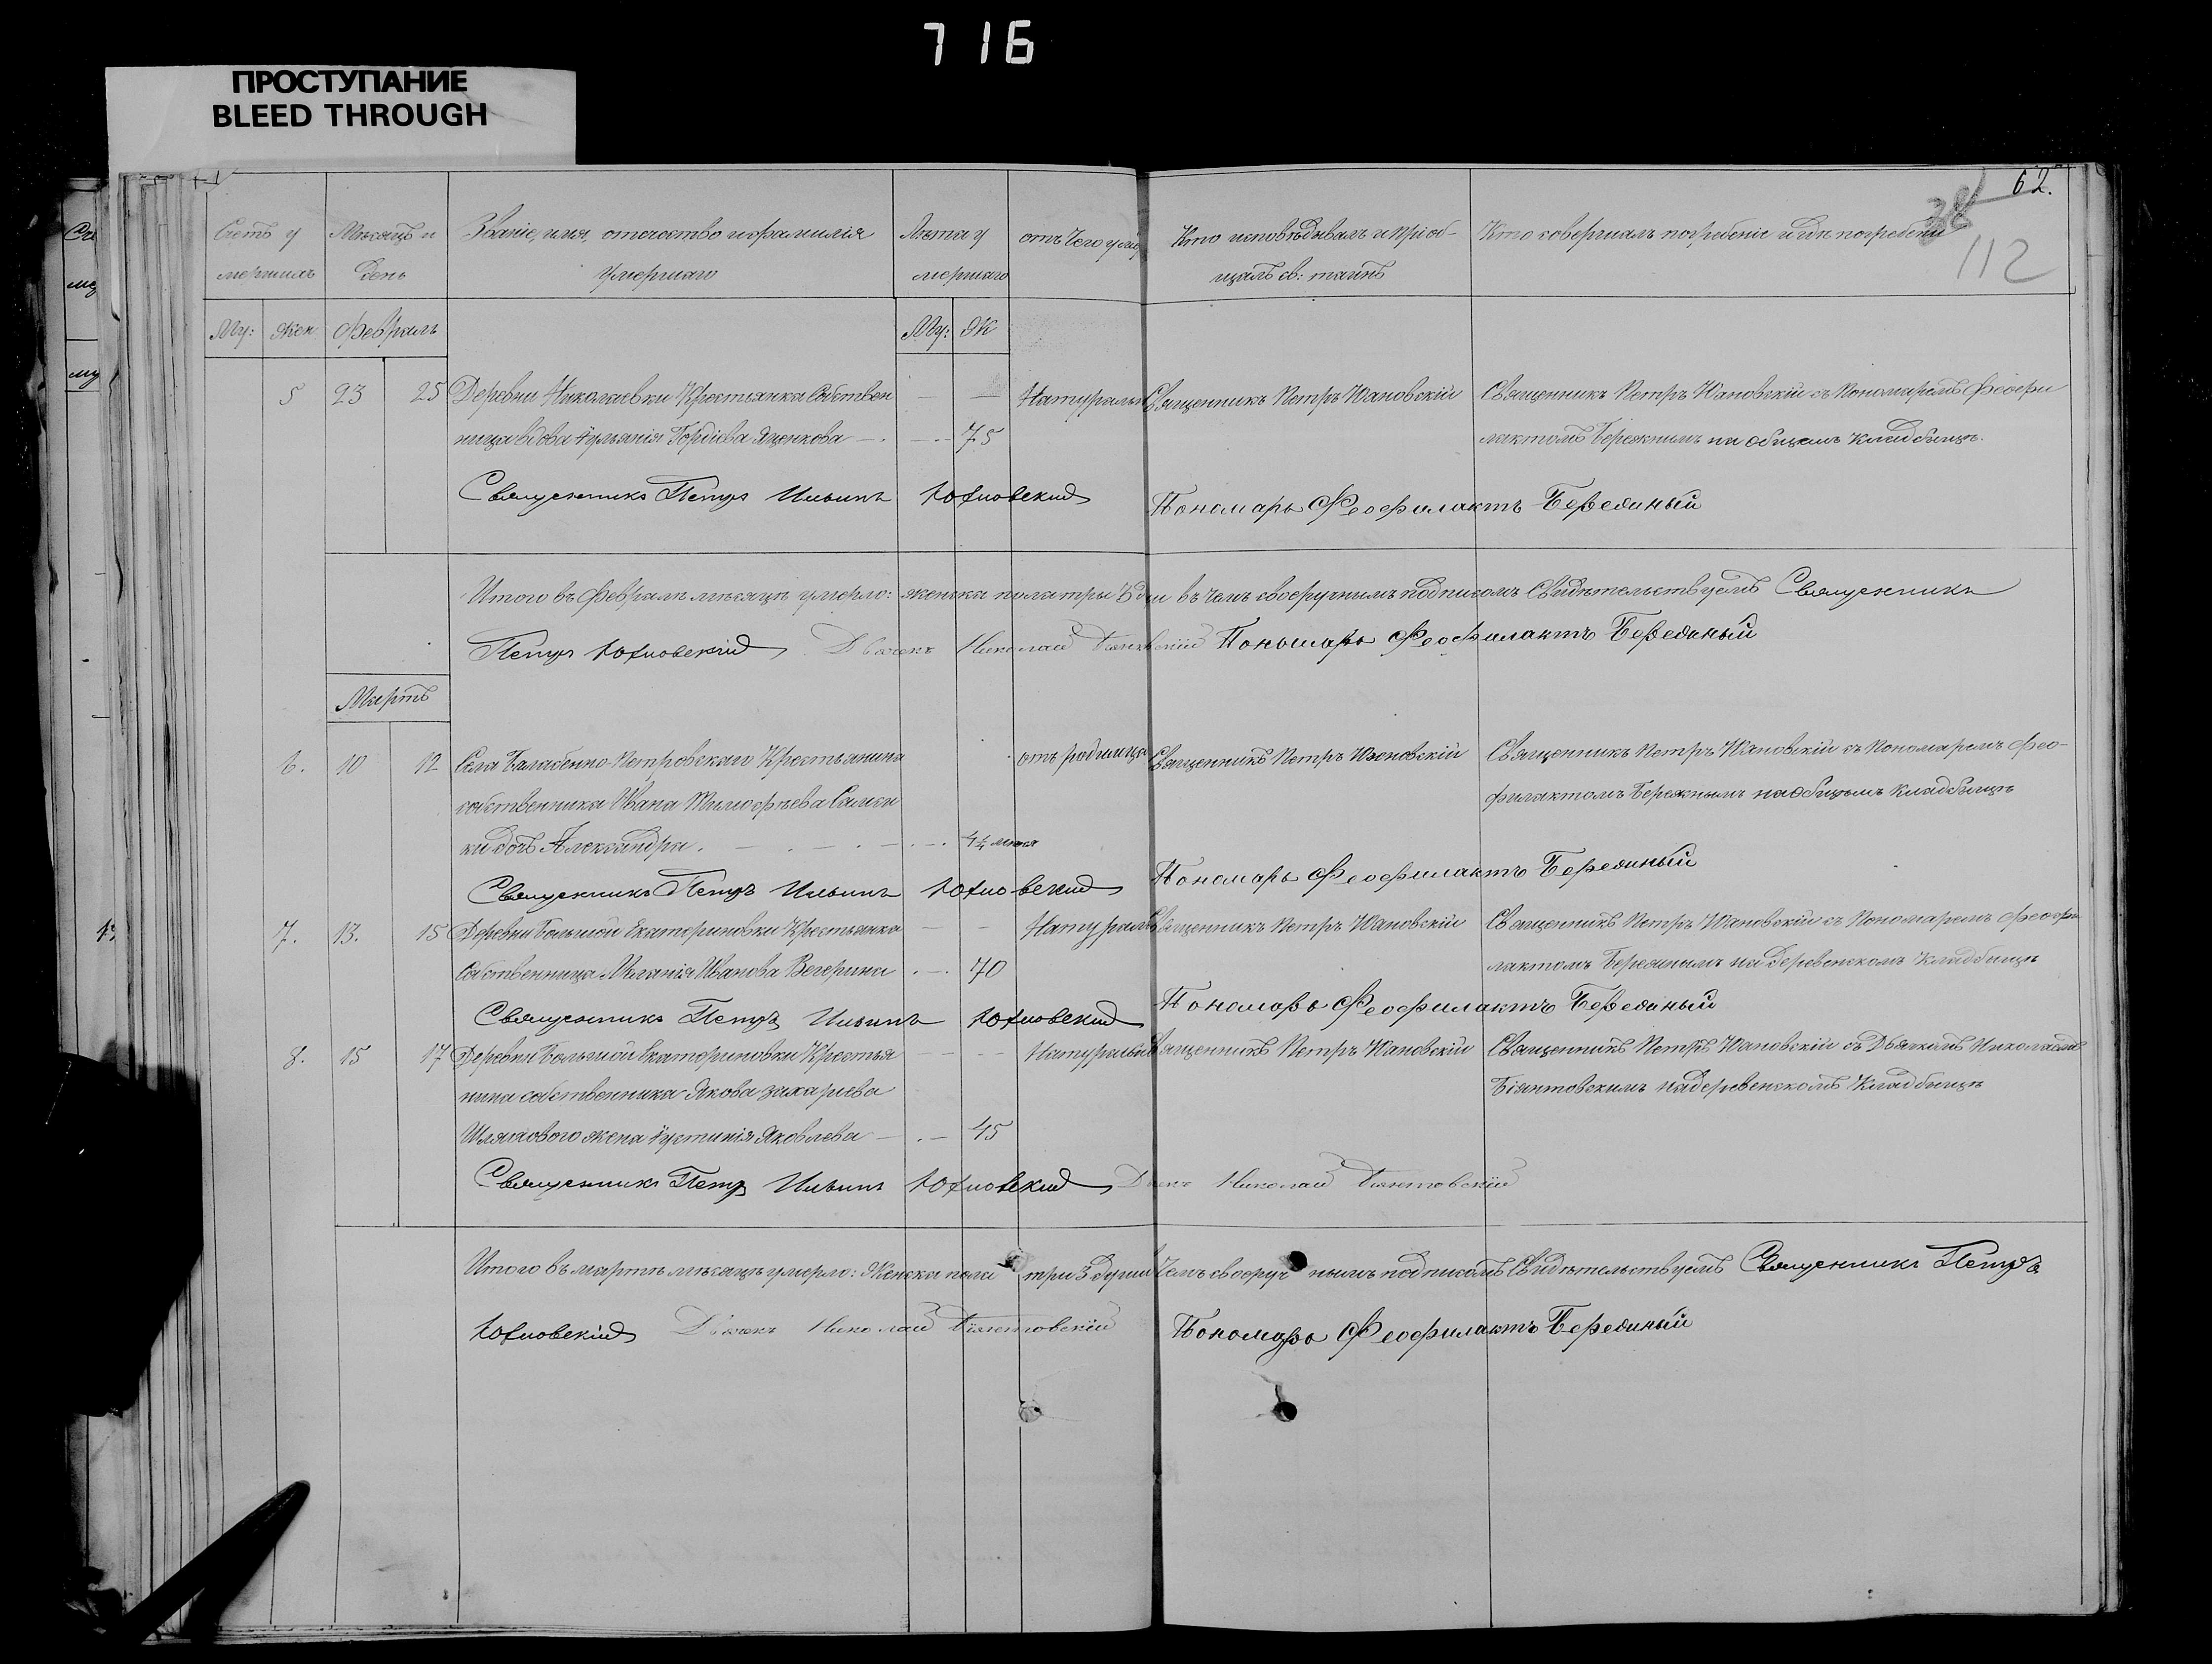 716
ПРОСТУПАНИЕ
BLEED THROUGH
62.
38
112
Счетъ у
мершихъ
Мѣсяцъ и
день
Званіе, имя, отчество и фамилія
умершаго
Лѣта у
мершаго
отъ чего умер
Кто исповѣдывалъ и пріоб-
щалъ св: таинъ
Кто совершалъ погребеніе и гдѣ погребены
Му: Жен Февраль Му: Ж
5 23 25 Деревни Николаевки Крестьянка Собствен — — Натуральн Священникъ Петръ Юхновскій Священникъ Петръ Юхновскій съ Пономаремъ Феофи
ница вдова Іуліанія Гордіева Яценкова — 75 лактомъ Бережнымъ на общемъ кладбищѣ.
Священникъ Петръ Ильинъ Юхновскій Пономарь Феофилактъ Бережный
Итого въ Февралѣ мѣсяцѣ умерло: женска пола три 3 души въ чемъ своеручнымъ подписомъ Свидѣтельствуемъ Священникъ
Петръ Юхновскій Дьячекъ Николай Біянтовскій Пономарь Феофилактъ Бережный
Мартъ
6. 10 12 Села Балабенно-Петровскаго Крестьянина отъ родимца Священникъ Петръ Юхновскій Священникъ Петръ Юхновскій съ Пономаремъ Фео-
собственника Ивана Тимофѣева филактомъ Бережнымъ на общемъ кладбищѣ
ки дочь Александра.
Священникъ Петръ Ильинъ Юхновскій Пономарь Феофилактъ Бережный
7. 13. 15 Деревни Большой Екатериновки Крестьянка — — Натураль Священникъ Петръ Юхновскій Священникъ Петръ Юхновскій съ Пономаремъ Феофи
Собственница Меланія Иванова Вечерина 70 лактомъ Бережнымъ на деревенскомъ кладбищѣ
Священникъ Петръ Ильинъ Юхновскій Пономарь Феофилактъ Бережный
8. 15 17 Деревни Большой Екатериновки Крестья — — Натуральн Священникъ Петръ Юхновскій Священникъ Петръ Юхновскій съ Дьячкомъ Николаемъ
нина собственника Якова Захаріева Біянтовскимъ на деревенскомъ кладбищѣ
Шляхового жена Іустинія Яковлева — 45
Священникъ Петръ Ильинъ Юхновскій Дьячекъ Николай Біянтовскій
Итого въ мартѣ мѣсяцѣ умерло: Женска пола три 3 души чемъ своеручнымъ подписомъ Свидѣтельствуемъ Священникъ Петръ
Юхновскій Дьячекъ Николай Біянтовскій Пономарь Феофилактъ Бережный